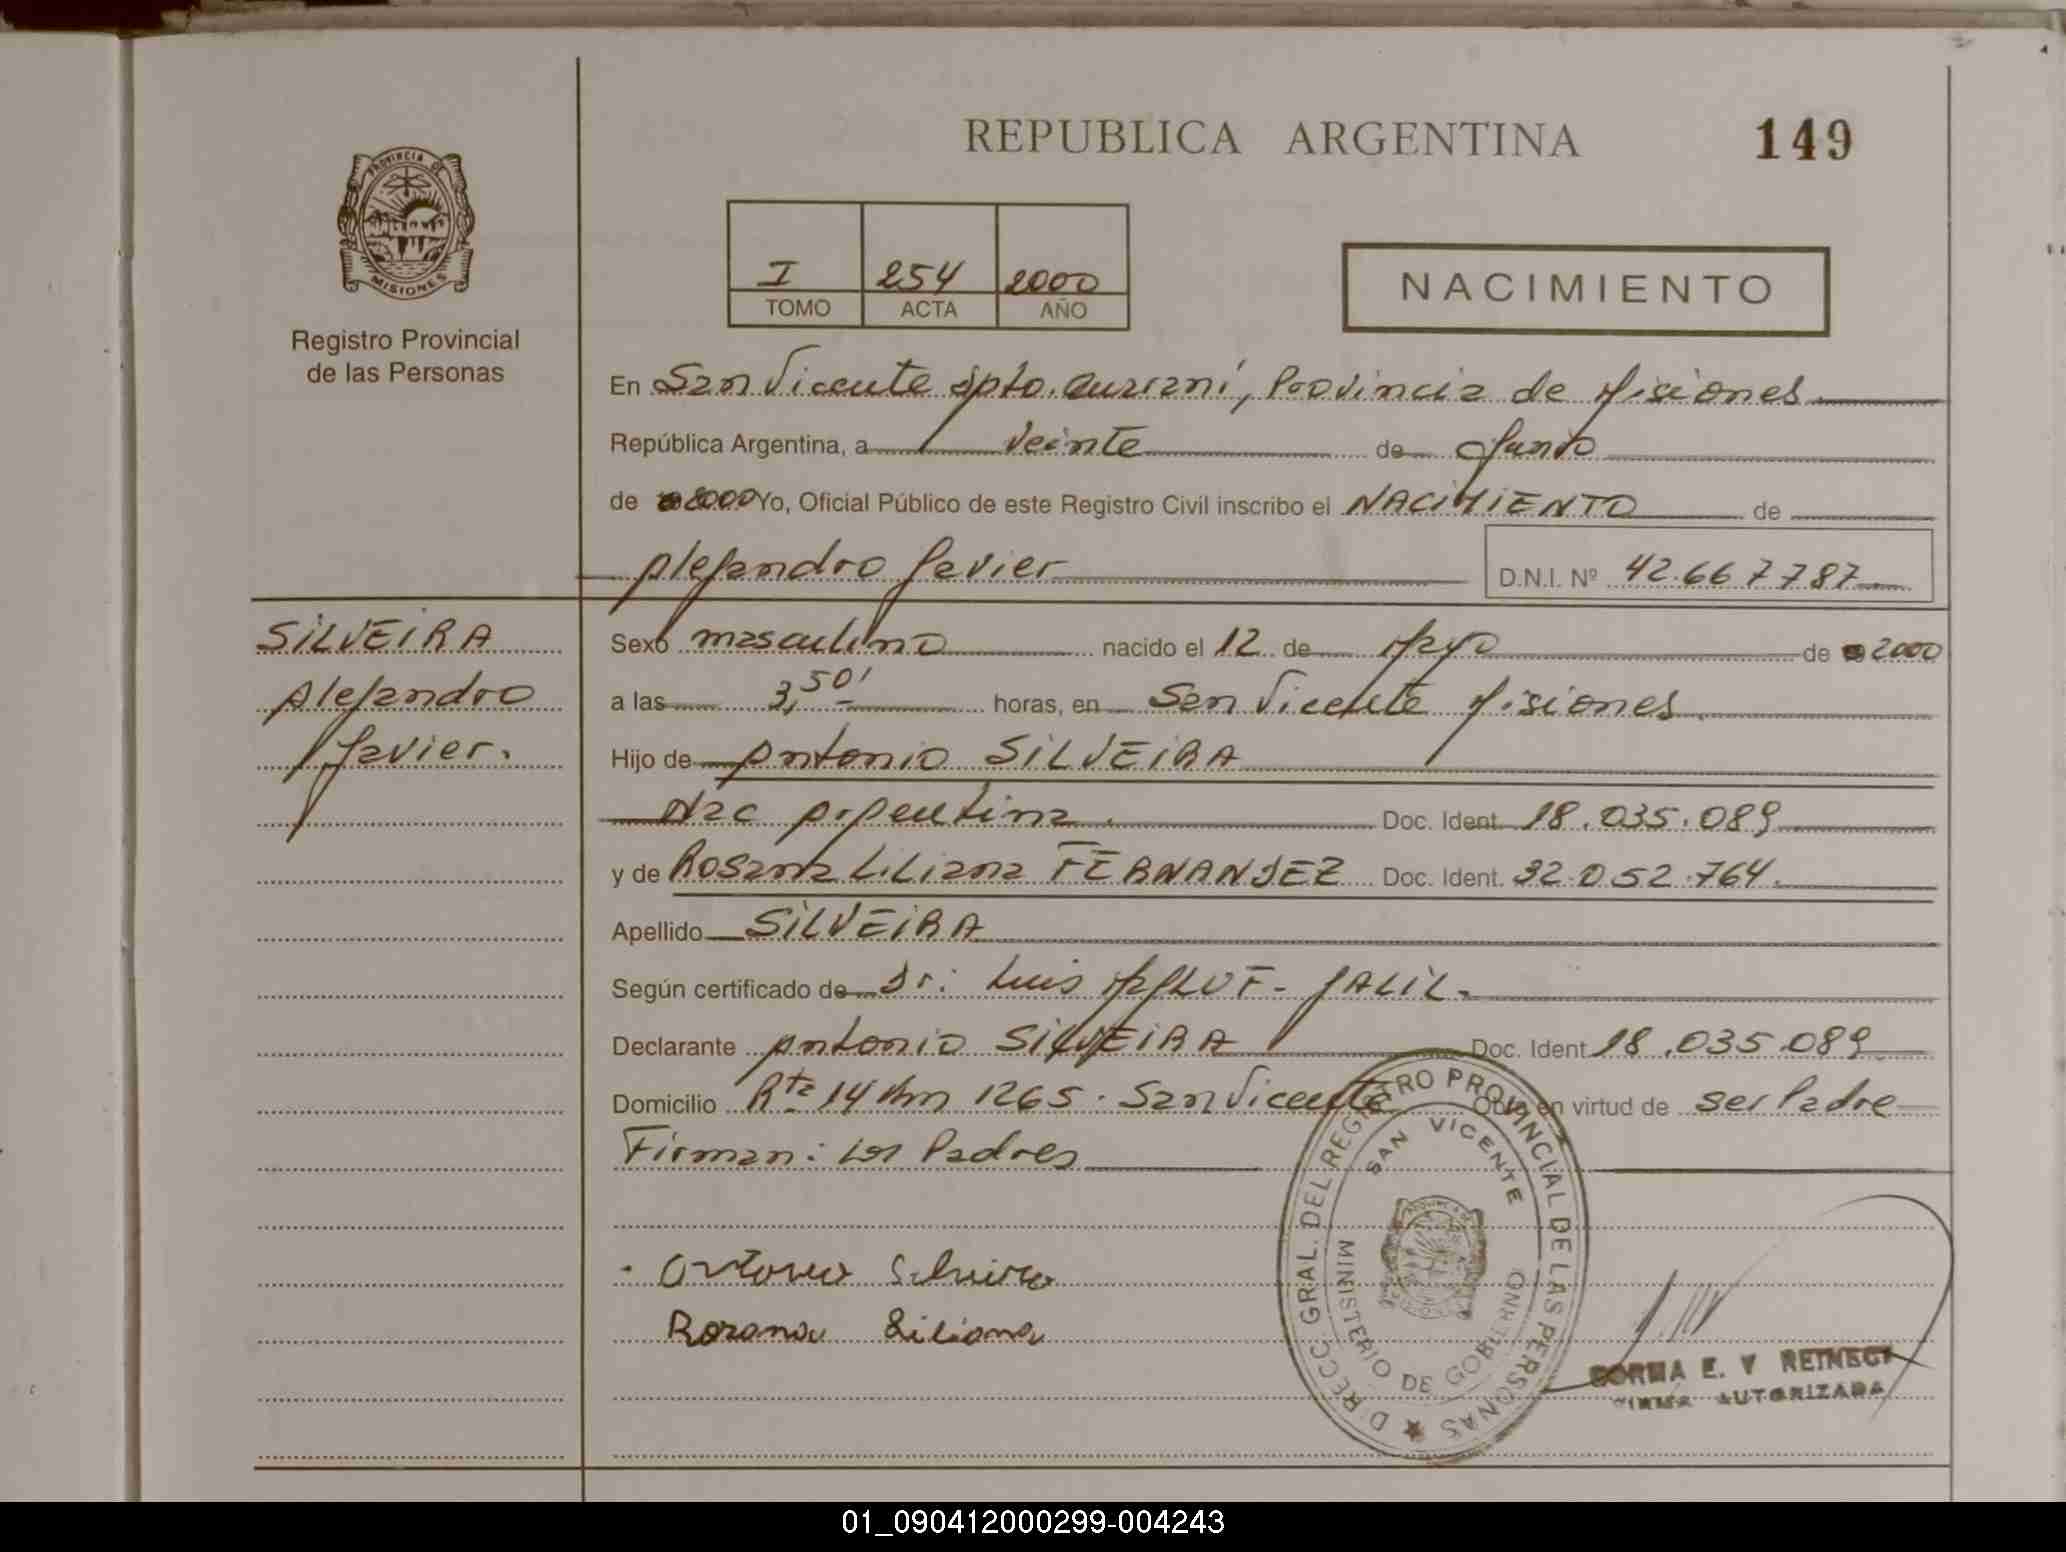 REPUBLICA ARGENTINA
149
PROVINCIA DE
MISIONES
Registro Provincial
de las Personas
I 254 2000
TOMO ACTA AÑO
NACIMIENTO
En San Vicente Dpto. Guaraní, Provincia de Misiones
República Argentina, a veinte de Junio
de 2000 Yo, Oficial Público de este Registro Civil inscribo el NACIMIENTO de
Alejandro Javier D.N.I. Nº 42.667.787
SILVEIRA
Alejandro
Javier.
Sexo masculino nacido el 12 de Mayo de 2000
a las 3,50' horas, en San Vicente Misiones
Hijo de Antonio SILVEIRA
Nac Argentina. Doc. Ident. 18.035.089
y de Rosana Liliana FERNANDEZ Doc. Ident. 32.052.764.
Apellido SILVEIRA
Según certificado de Dr: Luis MALUF - JALIL.
Declarante Antonio SILVEIRA Doc. Ident. 18.035.089
Domicilio Rta 14 Km 1265. San Vicente Obra en virtud de ser Padre
Firman: los Padres
Antonio Silveira
Rozana Liliana
DIRECC. GRAL. DEL REGISTRO PROVINCIAL DE LAS PERSONAS
SAN VICENTE
MINISTERIO DE GOBIERNO
E. V
FIRMA AUTORIZADA
01_090412000299-004243